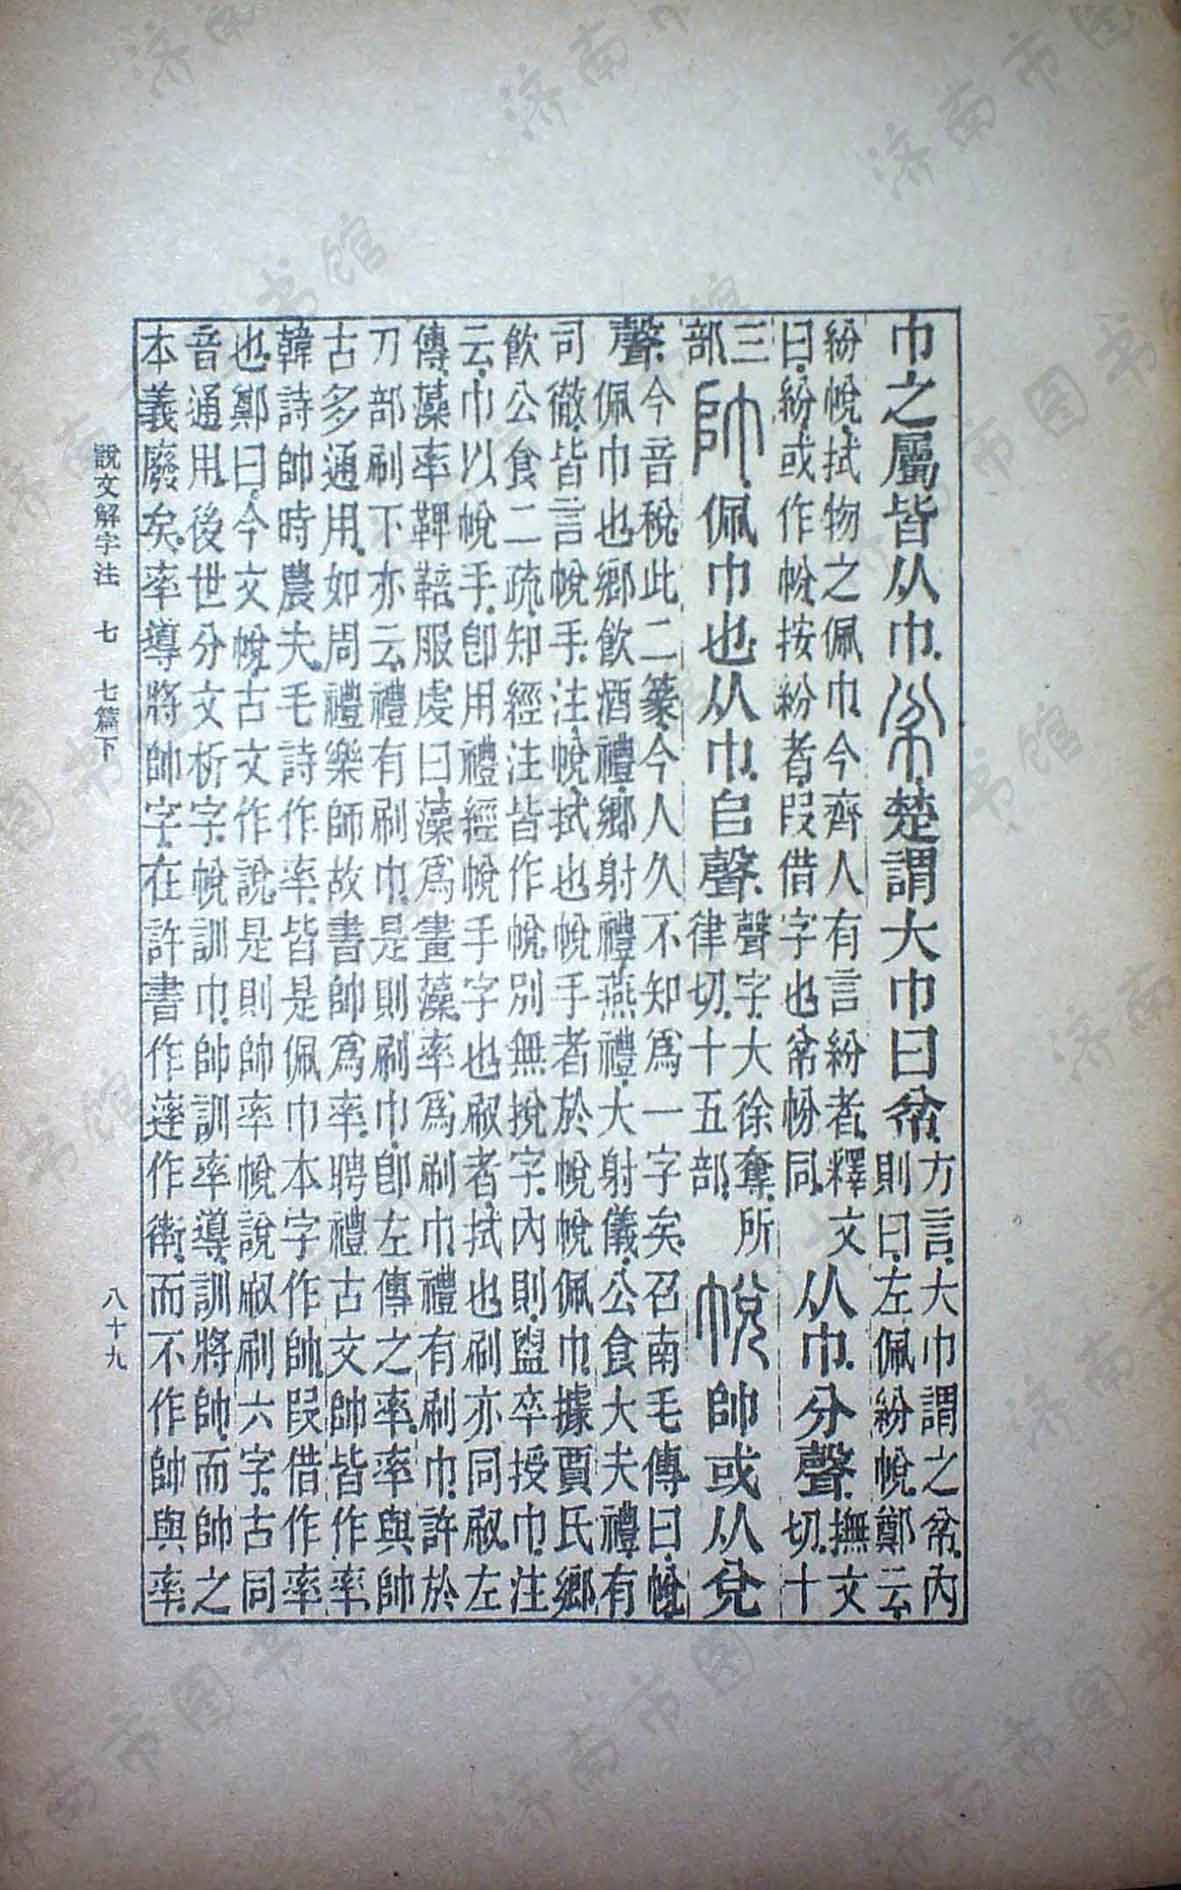 巾之屬皆从巾。帉楚謂大巾曰帉。方言。大巾謂之帉。內
則曰。左佩紛帨。鄭云。
紛帨。拭物之佩巾。今齊人有言紛者。釋文
曰。紛或作帉。按紛者、叚借字也。帉帉同。
从巾。分聲。撫文切。十
三部。帥佩巾也。从巾。𠂤聲。聲字大徐奪。所律切。十五部。帨帥或从兌
聲。今音稅。此二篆今人久不知爲一字矣。召南毛傳曰。帨、
佩巾也。鄉飲酒禮、鄉射禮、燕禮、大射儀、公食大夫禮、有
司徹。皆言帨手。注。帨、拭也。帨手者於帨。帨佩巾。據賈氏鄉
飲公食二疏。知經注皆作帨。別無挩字。內則。盥卒授巾。注
云。巾以帨手。卽用禮經帨手字也。㕞者、拭也。刷亦同㕞。左
傳。藻率鞞鞛。服虔曰。藻爲畫藻。率爲刷巾。禮有刷巾。許於
刀部刷下亦云。禮有刷巾。是則刷巾。卽左傳之率。率與帥
古多通用。如周禮樂師故書帥爲率。聘禮古文帥皆作率。
韓詩帥時農夫。毛詩作率。皆是佩巾本字作帥。叚借作率
也。鄭曰。今文帨。古文作說。是則帥率帨說㕞刷六字。古同
音通用。後世分文析字。帨訓巾。帥訓率導。訓將帥。而帥之
本義廢矣。率導將帥字。在許書作䢦作𧗿。而不作帥與率。
說文解字注 七 七篇下
八十九